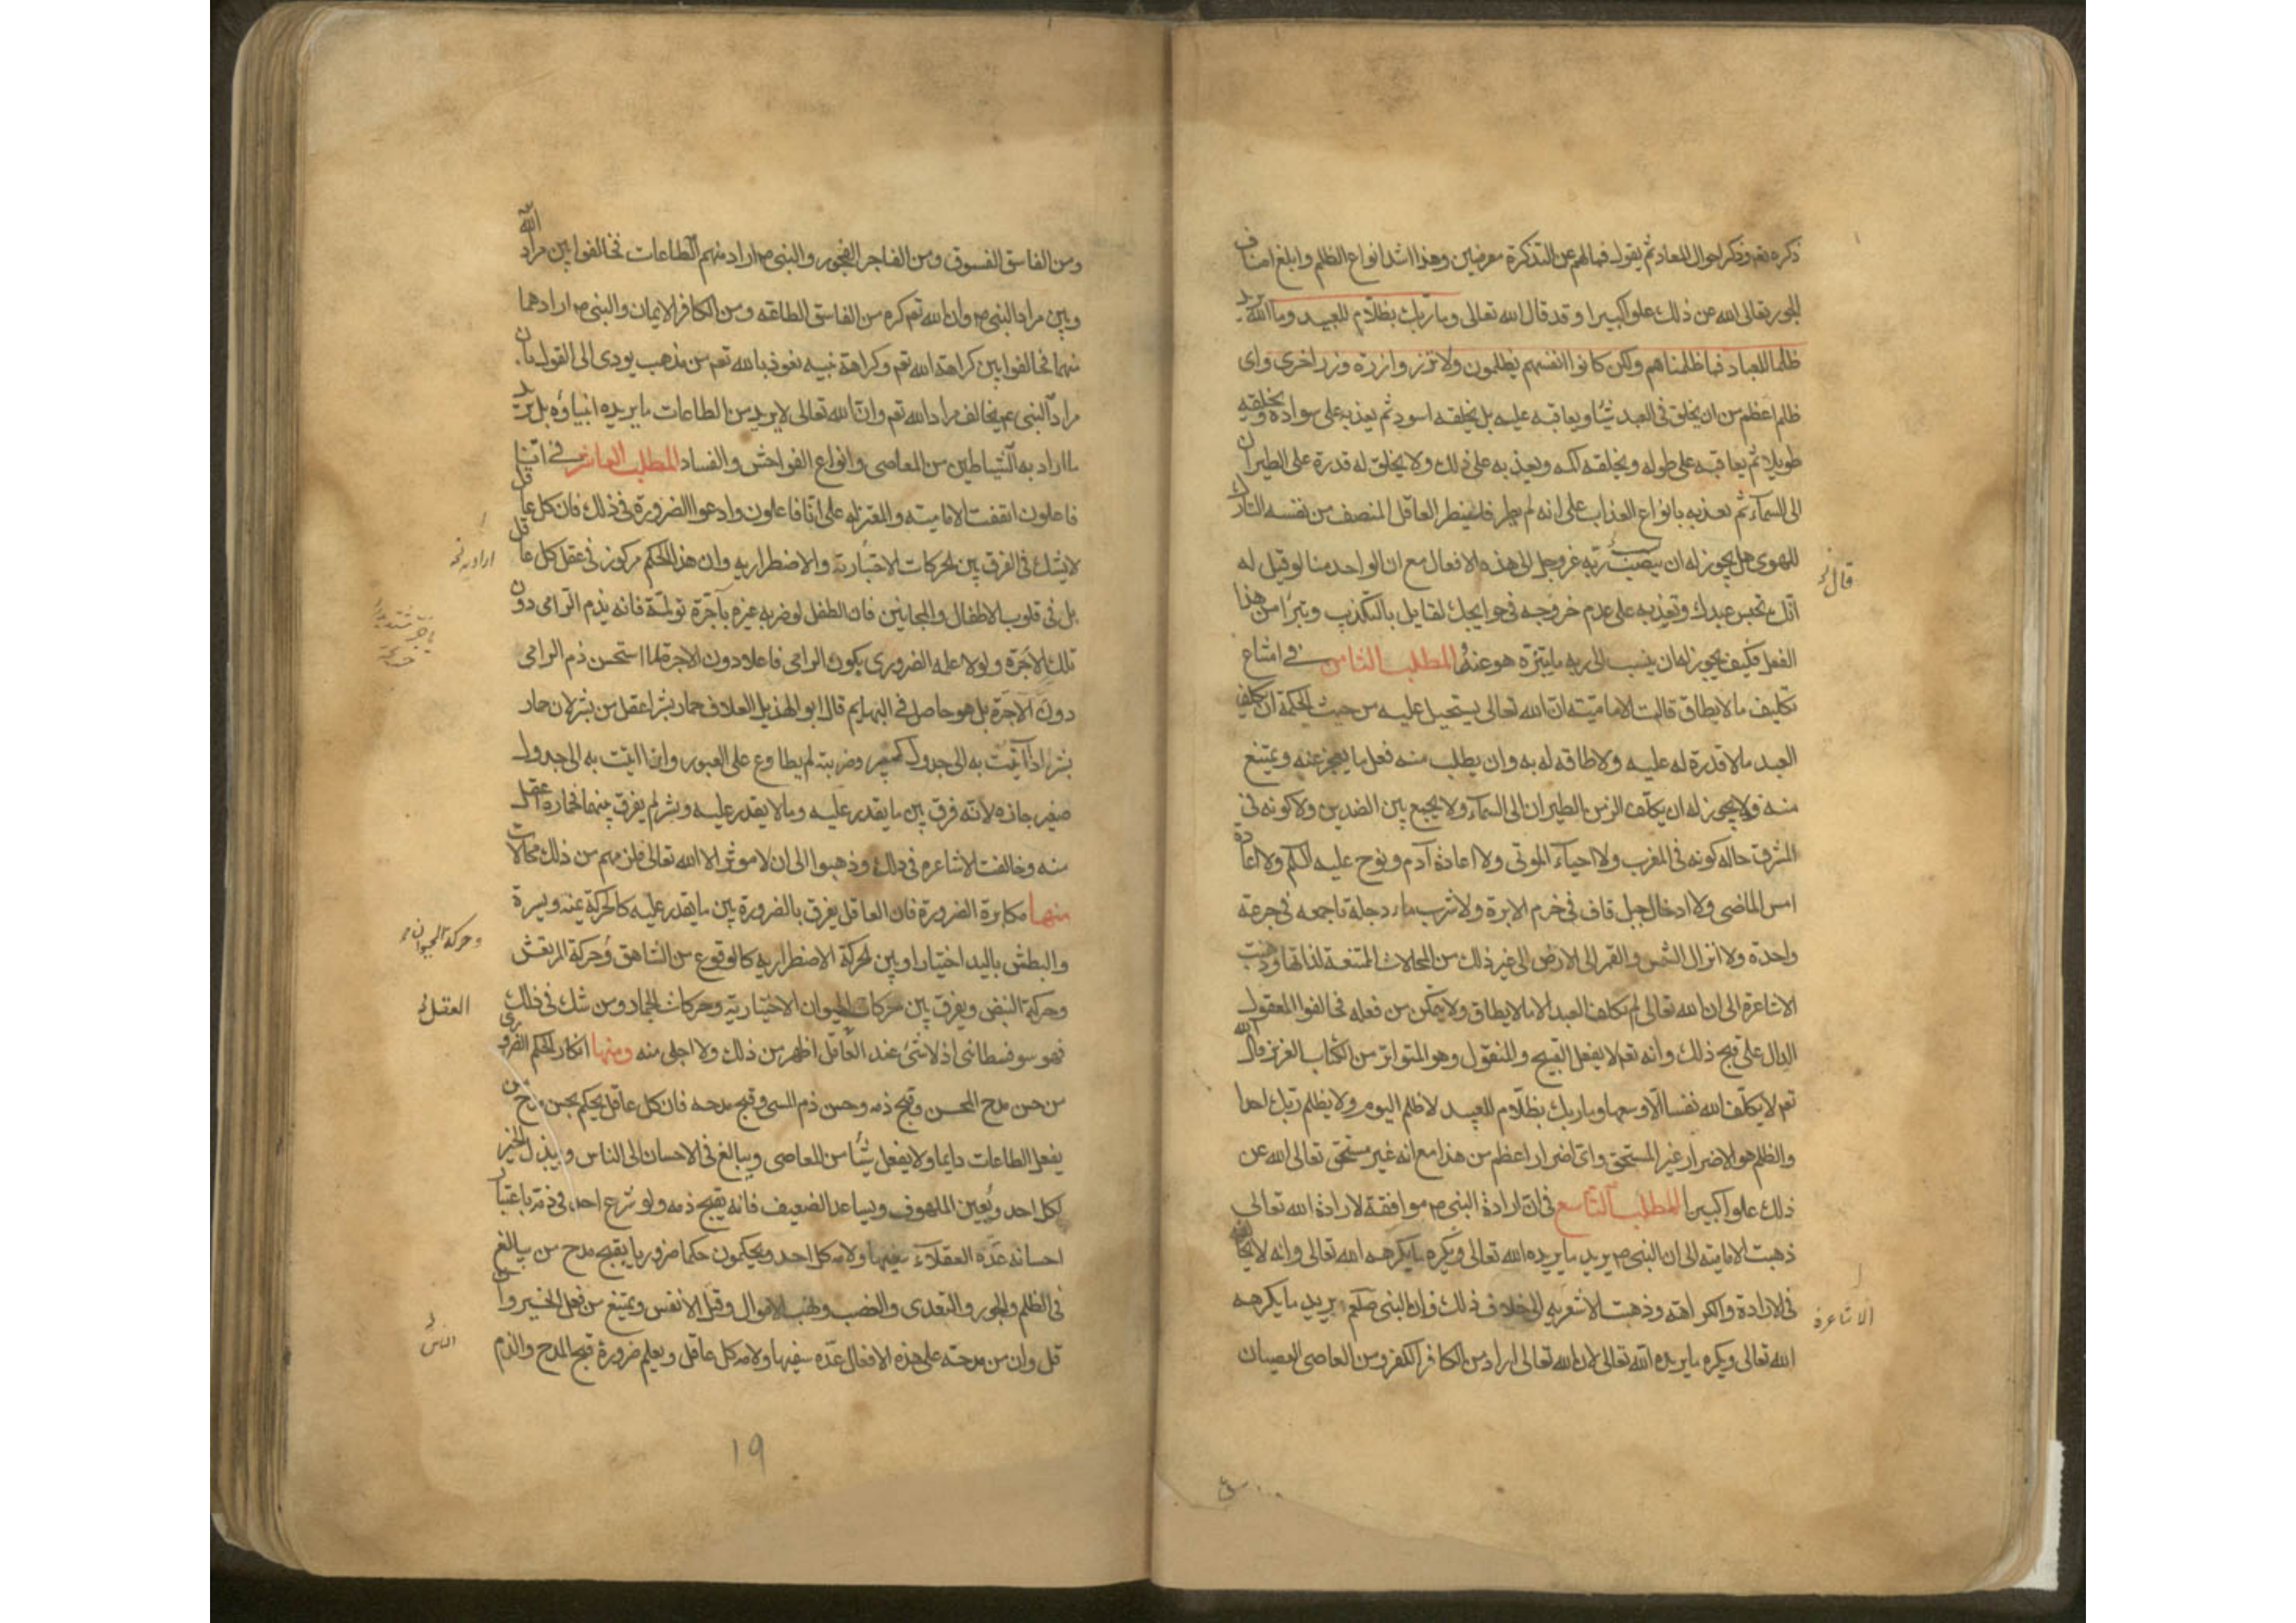 ذكره تعم وذكر احوال المعاد ثم يقول فمالهم عن التذكرة معرضين وهذا اشد انواع الظلم وابلغ اصناف
الجور تعالى الله عن ذلك علوا كبيرا وقد قال الله تعالى وما ربك بظلام للعبيد وما الله يريد
ظلما للعباد فما ظلمناهم ولكن كانوا انفسهم يظلمون ولا تزر وازرة وزر اخرى واى
ظلم اعظم من ان يخلق فى العبد شيئا ويعاقبه عليه بل يخلقه اسود ثم يعذبه على سواده ويخلقه
طويلا ثم يعاقبه على طوله ويخلقه اكمه ويعذبه على ذلك ولا يخلق له قدرة على الطيران
الى السماء ثم يعذبه بانواع العذاب على انه لم يطر فلينظر العاقل المنصف من نفسه التارك
للهوى هل يجوز له ان ينسب ربه عز وجل الى هذه الافعال مع ان الواحد منا لو قيل له
قال
انك تحبس عبدك وتعذبه على عدم خروجه فى حوايجك لقابل بالتكذيب وتبرأ من هذا
الفعل فكيف يجوز له ان ينسب الى ربه ما يتنزه هو عنه المطلب الثامن فى امتناع
تكليف ما لا يطاق قالت الامامية ان الله تعالى يستحيل عليه من حيث الحكمة ان يكلف
العبد ما لا قدرة له عليه ولا طاقه له به وان يطلب منه فعل ما يعجز عنه ويمتنع
منه ولا يجوز له ان يكلف الزمن الطيران الى السماء ولا يجمع بين الضدين ولا كونه فى
المشرق حاله كونه فى المغرب ولا احياء الموتى ولا اعادة آدم ونوح عليه السلم ولا اعادة
امس الماضى ولا ادخال جبل قاف فى خرم الابرة ولا شرب ماء دجلة باجمعه فى جرعة
واحدة ولا انزال الشمس والقمر الى الارض الى غير ذلك من المحالات الممتنعة لذاتها وذهبت
الاشاعرة الى ان الله تعالى لم يكلف العبد الا ما لا يطاق ولا يتمكن من فعله فخالفوا المعقول
الدال على قبح ذلك وانه تعم لا يفعل القبيح والمنقول وهو المتواتر من الكتاب العزيز قال الله
تعم لا يكلف الله نفسا الا وسعها وما ربك بظلام للعبيد لا ظلم اليوم ولا يظلم ربك احدا
والظلم هو الاضرار غير المستحق واى اضرار اعظم من هذا مع انه غير مستحق تعالى الله عن
ذلك علوا كبيرا المطلب التاسع فى ان ارادة النبى ص موافقة لارادة الله تعالى
ذهبت الامامية الى ان النبى ص يريد ما يريده الله تعالى ويكره ما يكرهه الله تعالى وانه لا يخالفه
فى الارادة والكراهة وذهبت الاشعريه الى خلاف ذلك وان النبى صلعم يريد ما يكرهه
الاشاعرة
الله تعالى ويكره ما يريده الله تعالى لان الله تعالى اراد من الكافر الكفر ومن العاصى العصيان
ومن الفاسق الفسوق ومن الفاجر الفجور والنبى ص اراد منهم الطاعات فخالفوا بين مراد الله
وبين مراد النبى ص وان الله تعم كره من الفاسق الطاعة ومن الكافر الايمان والنبى ص ارادهما
منهما فخالفوا بين كراهة الله تعم وكراهة نبيه نعوذ بالله تعم من مذهب يودى الى القول بان
مراد النبى عم يخالف مراد الله تعم وان الله تعالى لا يريد من الطاعات ما يريده انبياؤه بل يريد
ما اراد به الشياطين من المعاصى وانواع الفواحش والفساد المطلب العاشر فى اننا
فاعلون اتفقت الامامية والمعتزله على انا فاعلون وادعوا الضرورة فى ذلك فان كل عاقل
لا يشك فى الفرق بين الحركات الاختيارية والاضطراريه وان هذا الحكم مركوز فى عقل كل عاقل
بل فى قلوب الاطفال والمجانين فان الطفل لو ضربه غيره بآجرة تولمة فانه يذم الرامى دون
تلك الاجرة ولولا علمه الضرورى بكون الرامى فاعلا دون الاجرة لما استحسن ذم الرامى
دون الآجرة بل هو حاصل فى البهايم قال ابو الهذيل العلاف حمار بشر اعقل من بشر لان حمار
بشر اذا اتيت به الى جدول كبير وضربته لم يطاوع على العبور وان اتيت به الى جدول
صغير جازه لانه فرق بين ما يقدر عليه وما لا يقدر عليه وبشر لم يفرق بينهما فحماره اعقل
منه وخالفت الاشاعره فى ذلك وذهبوا الى ان لا موثر الا الله تعالى فلزمهم من ذلك محالات
منها مكابرة الضرورة فان العاقل يفرق بالضرورة بين ما يقدر عليه كالحركة يمنه ويسرة
والبطش باليد اختيارا وبين الحركة الاضطراريه كالوقوع من الشاهق وحركة المرتعش
وحركة الحيوان
وحركة النبض ويفرق بين حركات الحيوان الاختيارية وحركات الجماد ومن شك فى ذلك
العقل
فهو سوفسطائى اذ لا شئ عند العاقل اظهر من ذلك ولا اجلى منه ومنها انكار الحكم الضرورى
من حسن مدح المحسن وقبح ذمه وحسن ذم المسى وقبح مدحه فان كل عاقل يحكم بحسن مدح من
يفعل الطاعات دايما ولا يفعل شيئا من المعاصى ويبالغ فى الاحسان الى الناس ويبذل الخير
لكل احد ويعين الملهوف ويساعد الضعيف فانه يقبح ذمه ولو شرع احد فى ذمه باعتبار
احسانه عده العقلاء سفيها ولامه كل احد ويحكمون حكما ضروريا بقبح مدح من يبالغ
فى الظلم والجور والتعدى والغصب ونهب الاموال وقتل الانفس ويمتنع من فعل الخير وان
قل وان من مدحه على هذه الافعال عده سفيها ولامه كل عاقل ويعلم ضرورة قبح المدح والذم
الناس
19